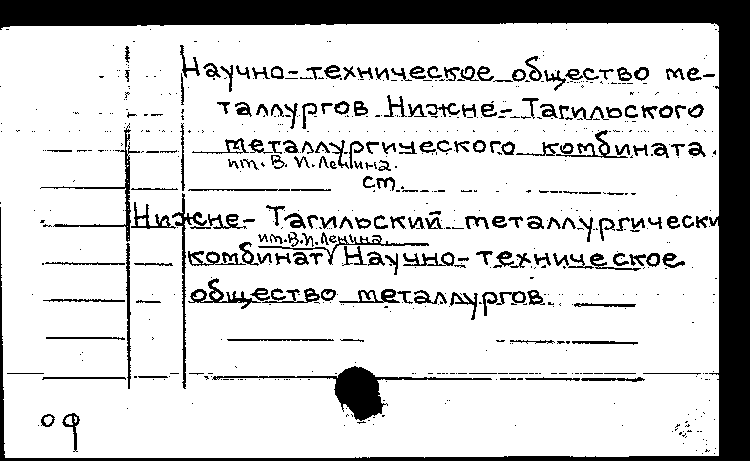 Научно-техническое общество ме-
таллургов Нижне-Тагильского
металлургического комбината.
им. В. И. Ленина.
ст.
Нижне-Тагильский металлургически
им. В. И. Ленина.
комбинат/ Научно-техническое
общество металлургов.
09